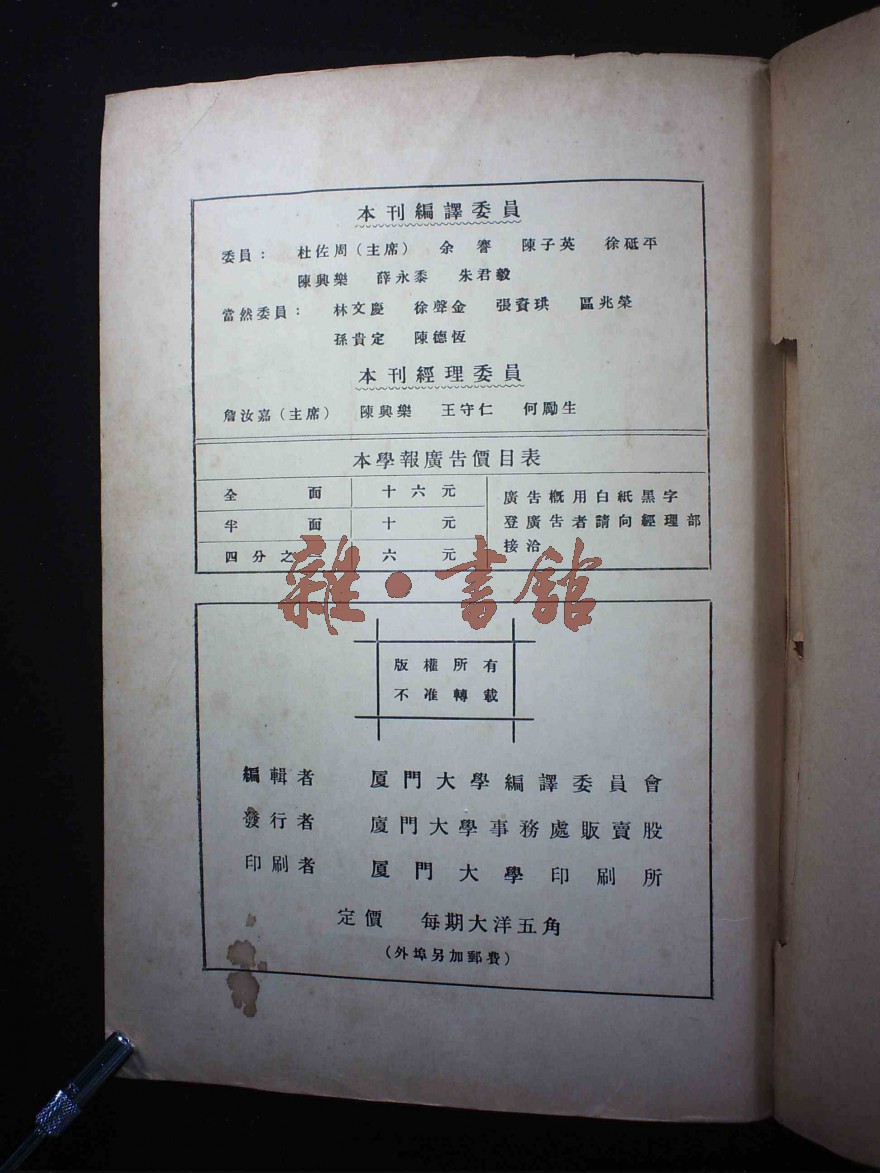 本刊編譯委員
委員： 杜佐周（主席） 余謇 陳子英 徐砥平
陳興樂 薛永黍 朱君毅
當然委員： 林文慶 徐聲金 張資珙 區兆榮
孫貴定 陳德恆
本刊經理委員
詹汝嘉（主席） 陳興樂 王守仁 何勵生
本學報廣告價目表
全面 十六元
半面 十元
四分之一 六元
廣告槪用白紙黑字
登廣告者請向經理部
接洽
雜·書館
版權所有
不准轉載
編輯者 厦門大學編譯委員會
發行者 廈門大學事務處販賣股
印刷者 厦門大學印刷所
定價 每期大洋五角
（外埠另加郵費）